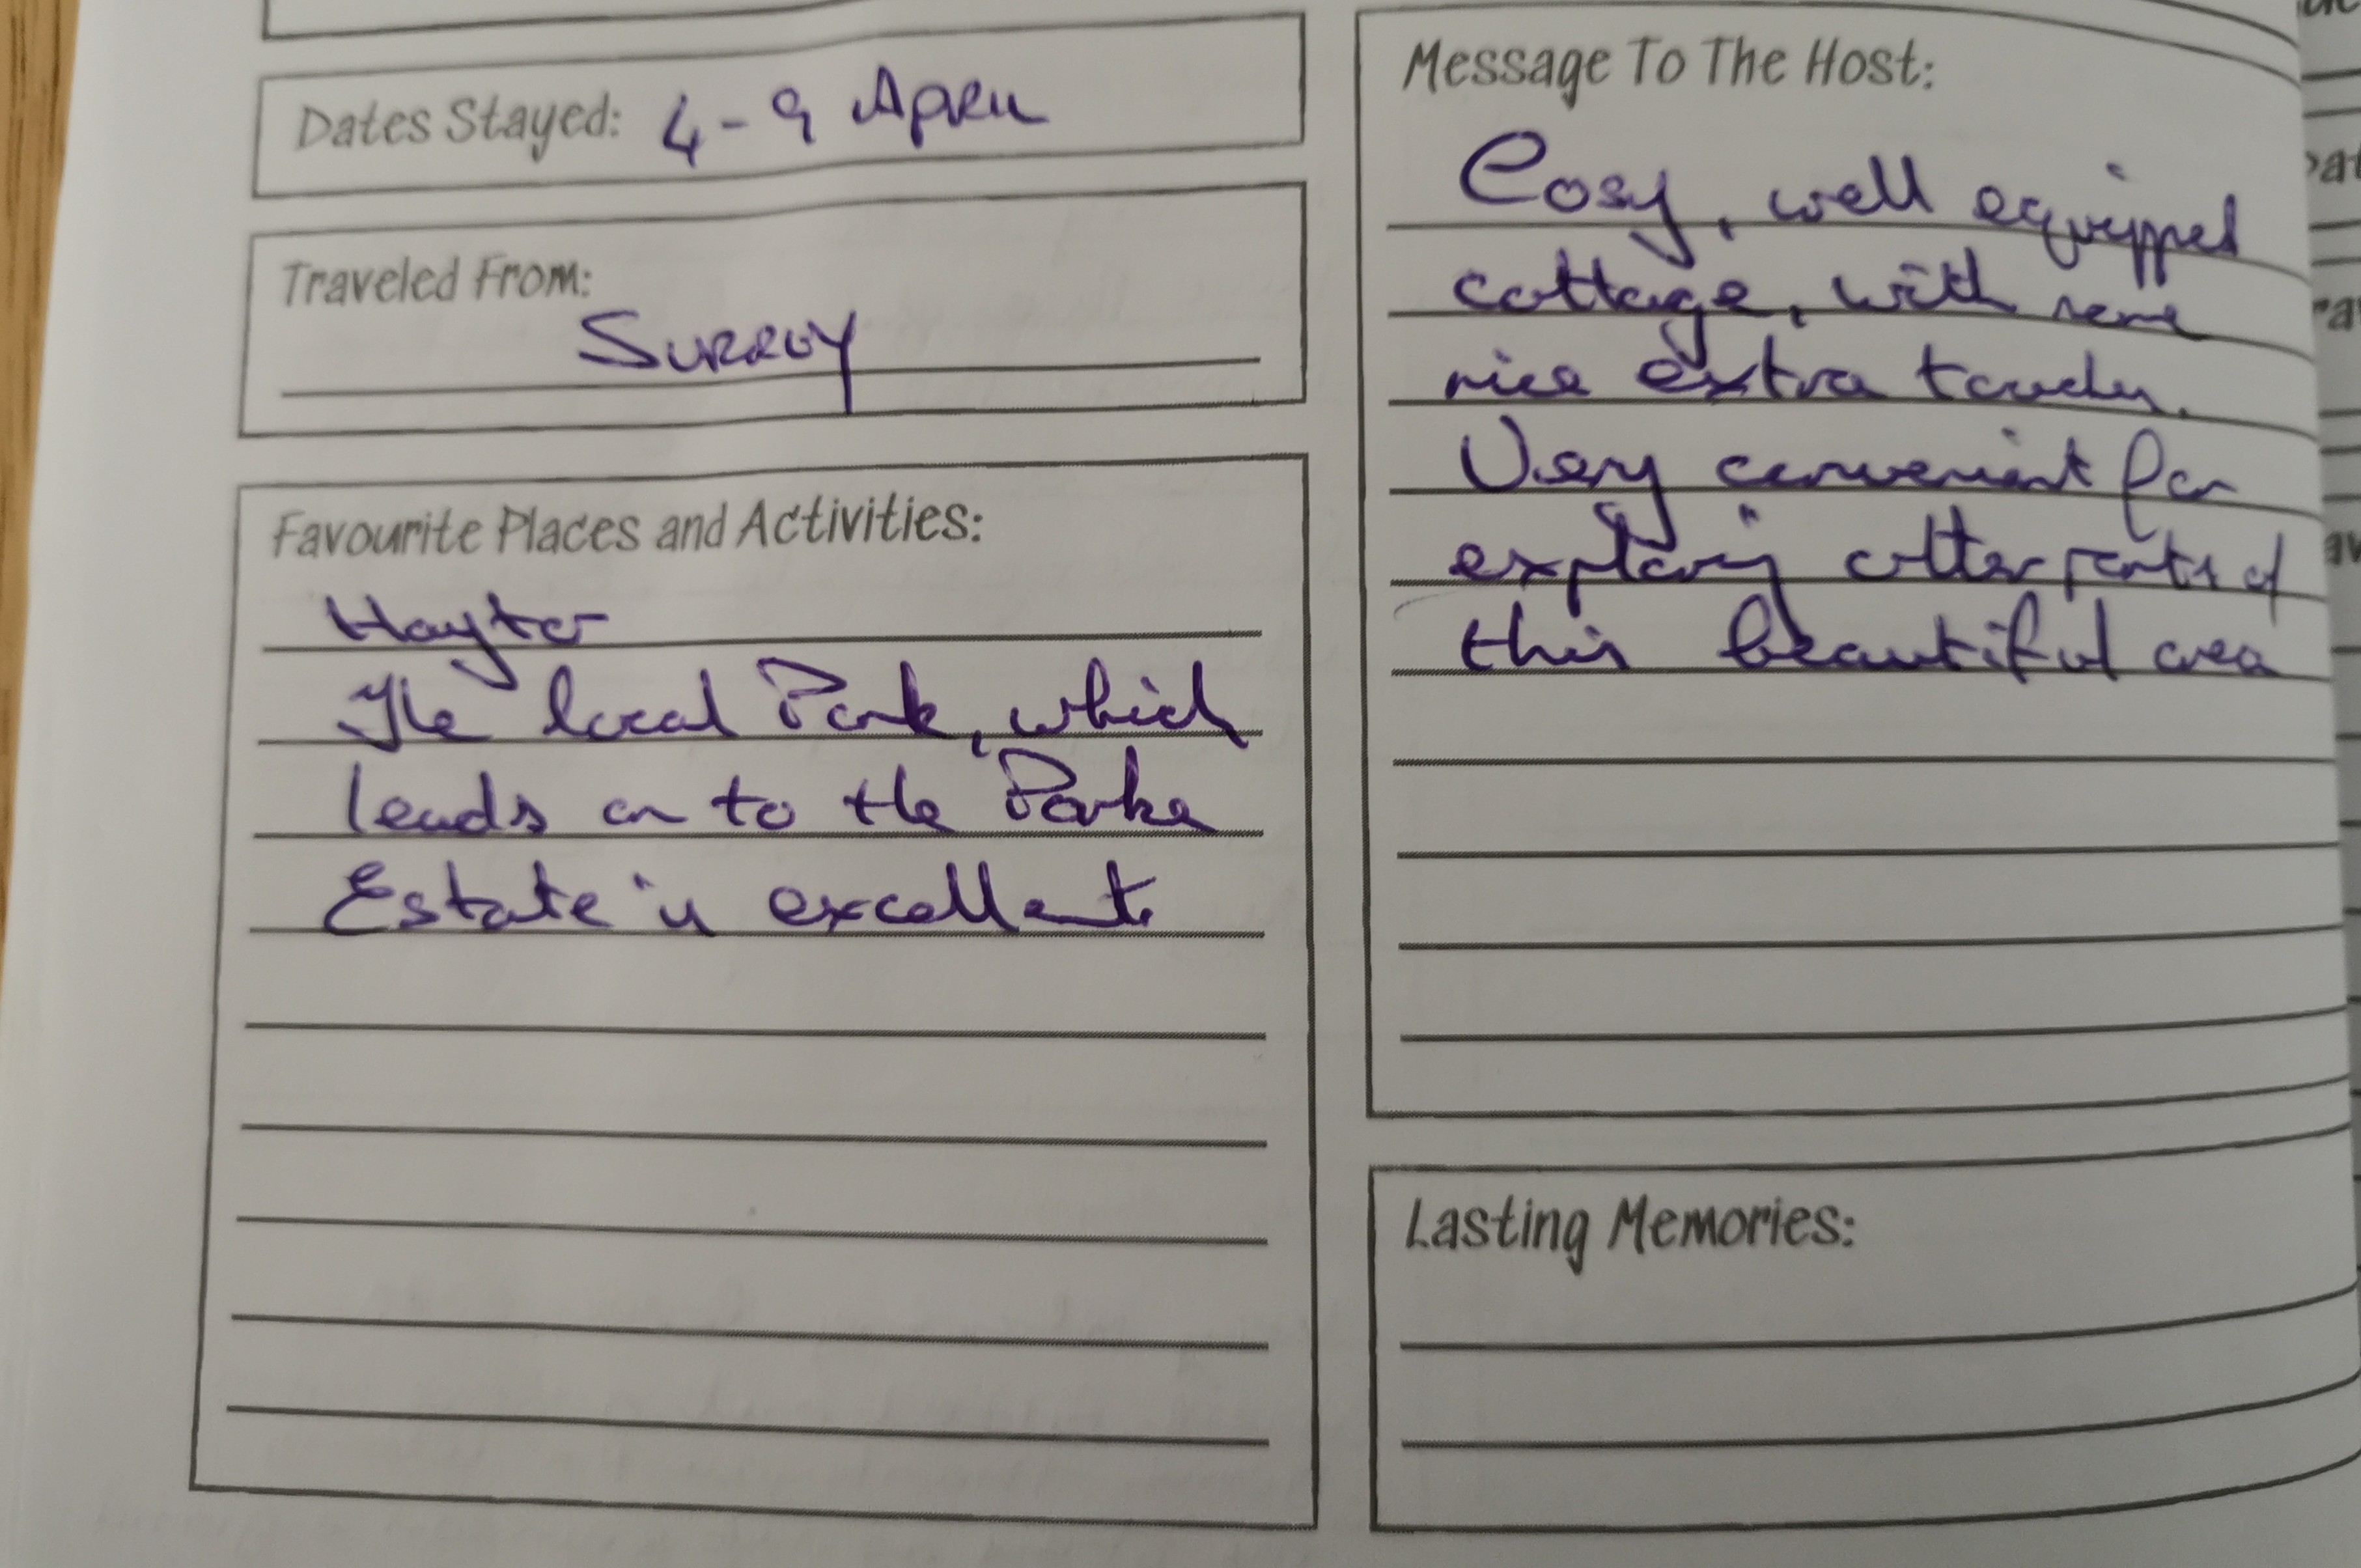 Dates Stayed: 4 - 9 April
Traveled From:
Surrey
Favourite Places and Activities:
Haytor
The local Park, which
leads on to the Parke
Estate is excellent.
Message To The Host:
Cosy, well equipped
cottage, with some
nice extra touches.
Very convenient for
exploring other parts of
this beautiful area
Lasting Memories: